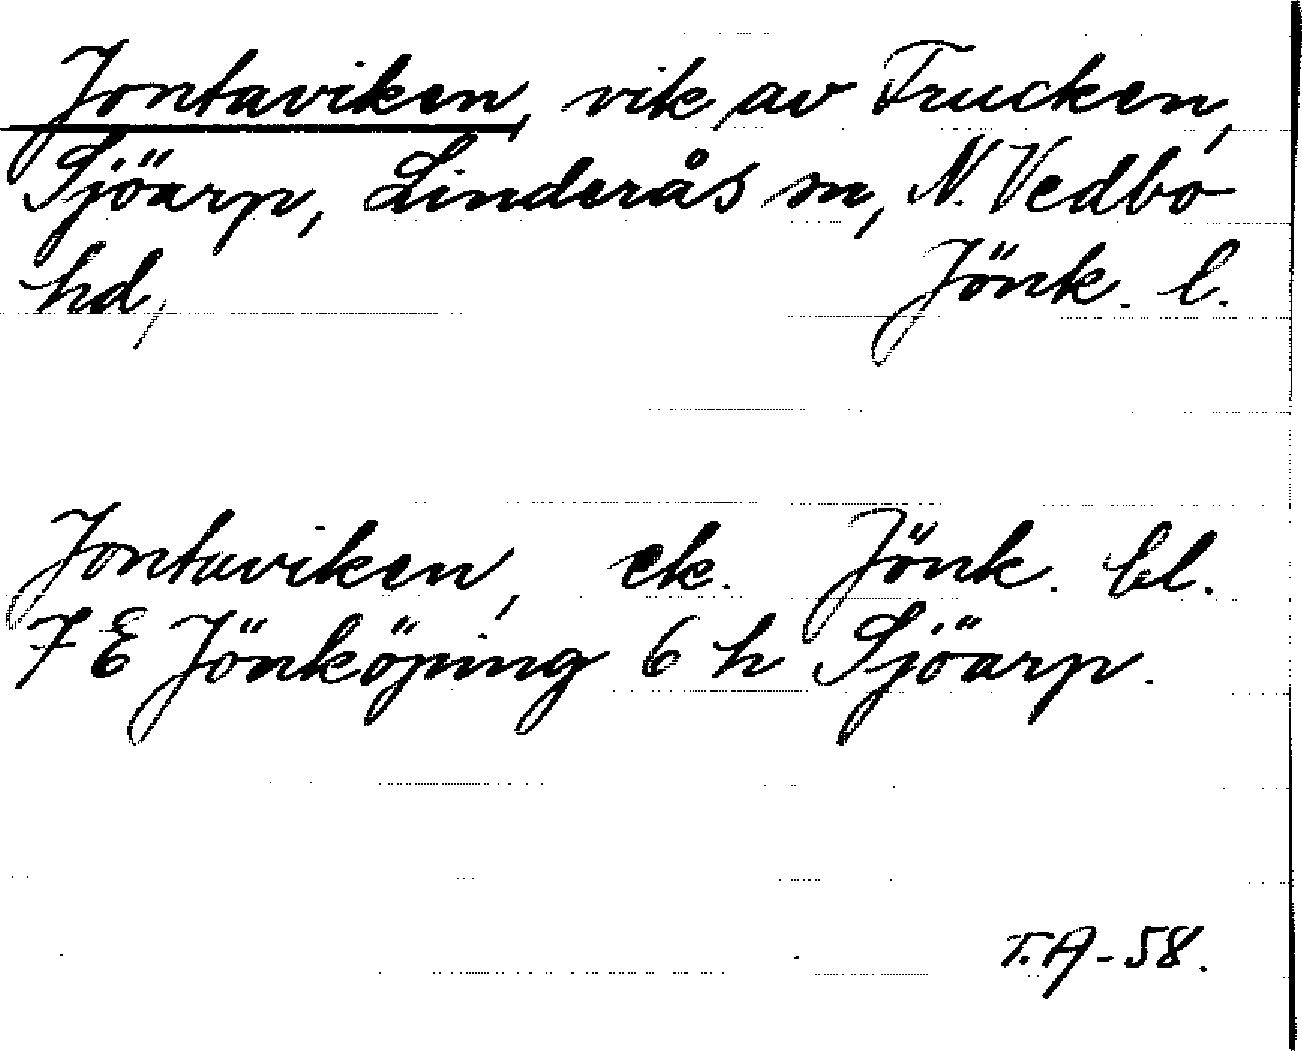 Jontaviken, vik av Frucken,
Sjöarp, Linderås sn, N. Vedbo
hd, Jönk. l.
Jontaviken, ek. Jönk. bl.
7 E Jönköping 6 h Sjöarp.
T.A-58.